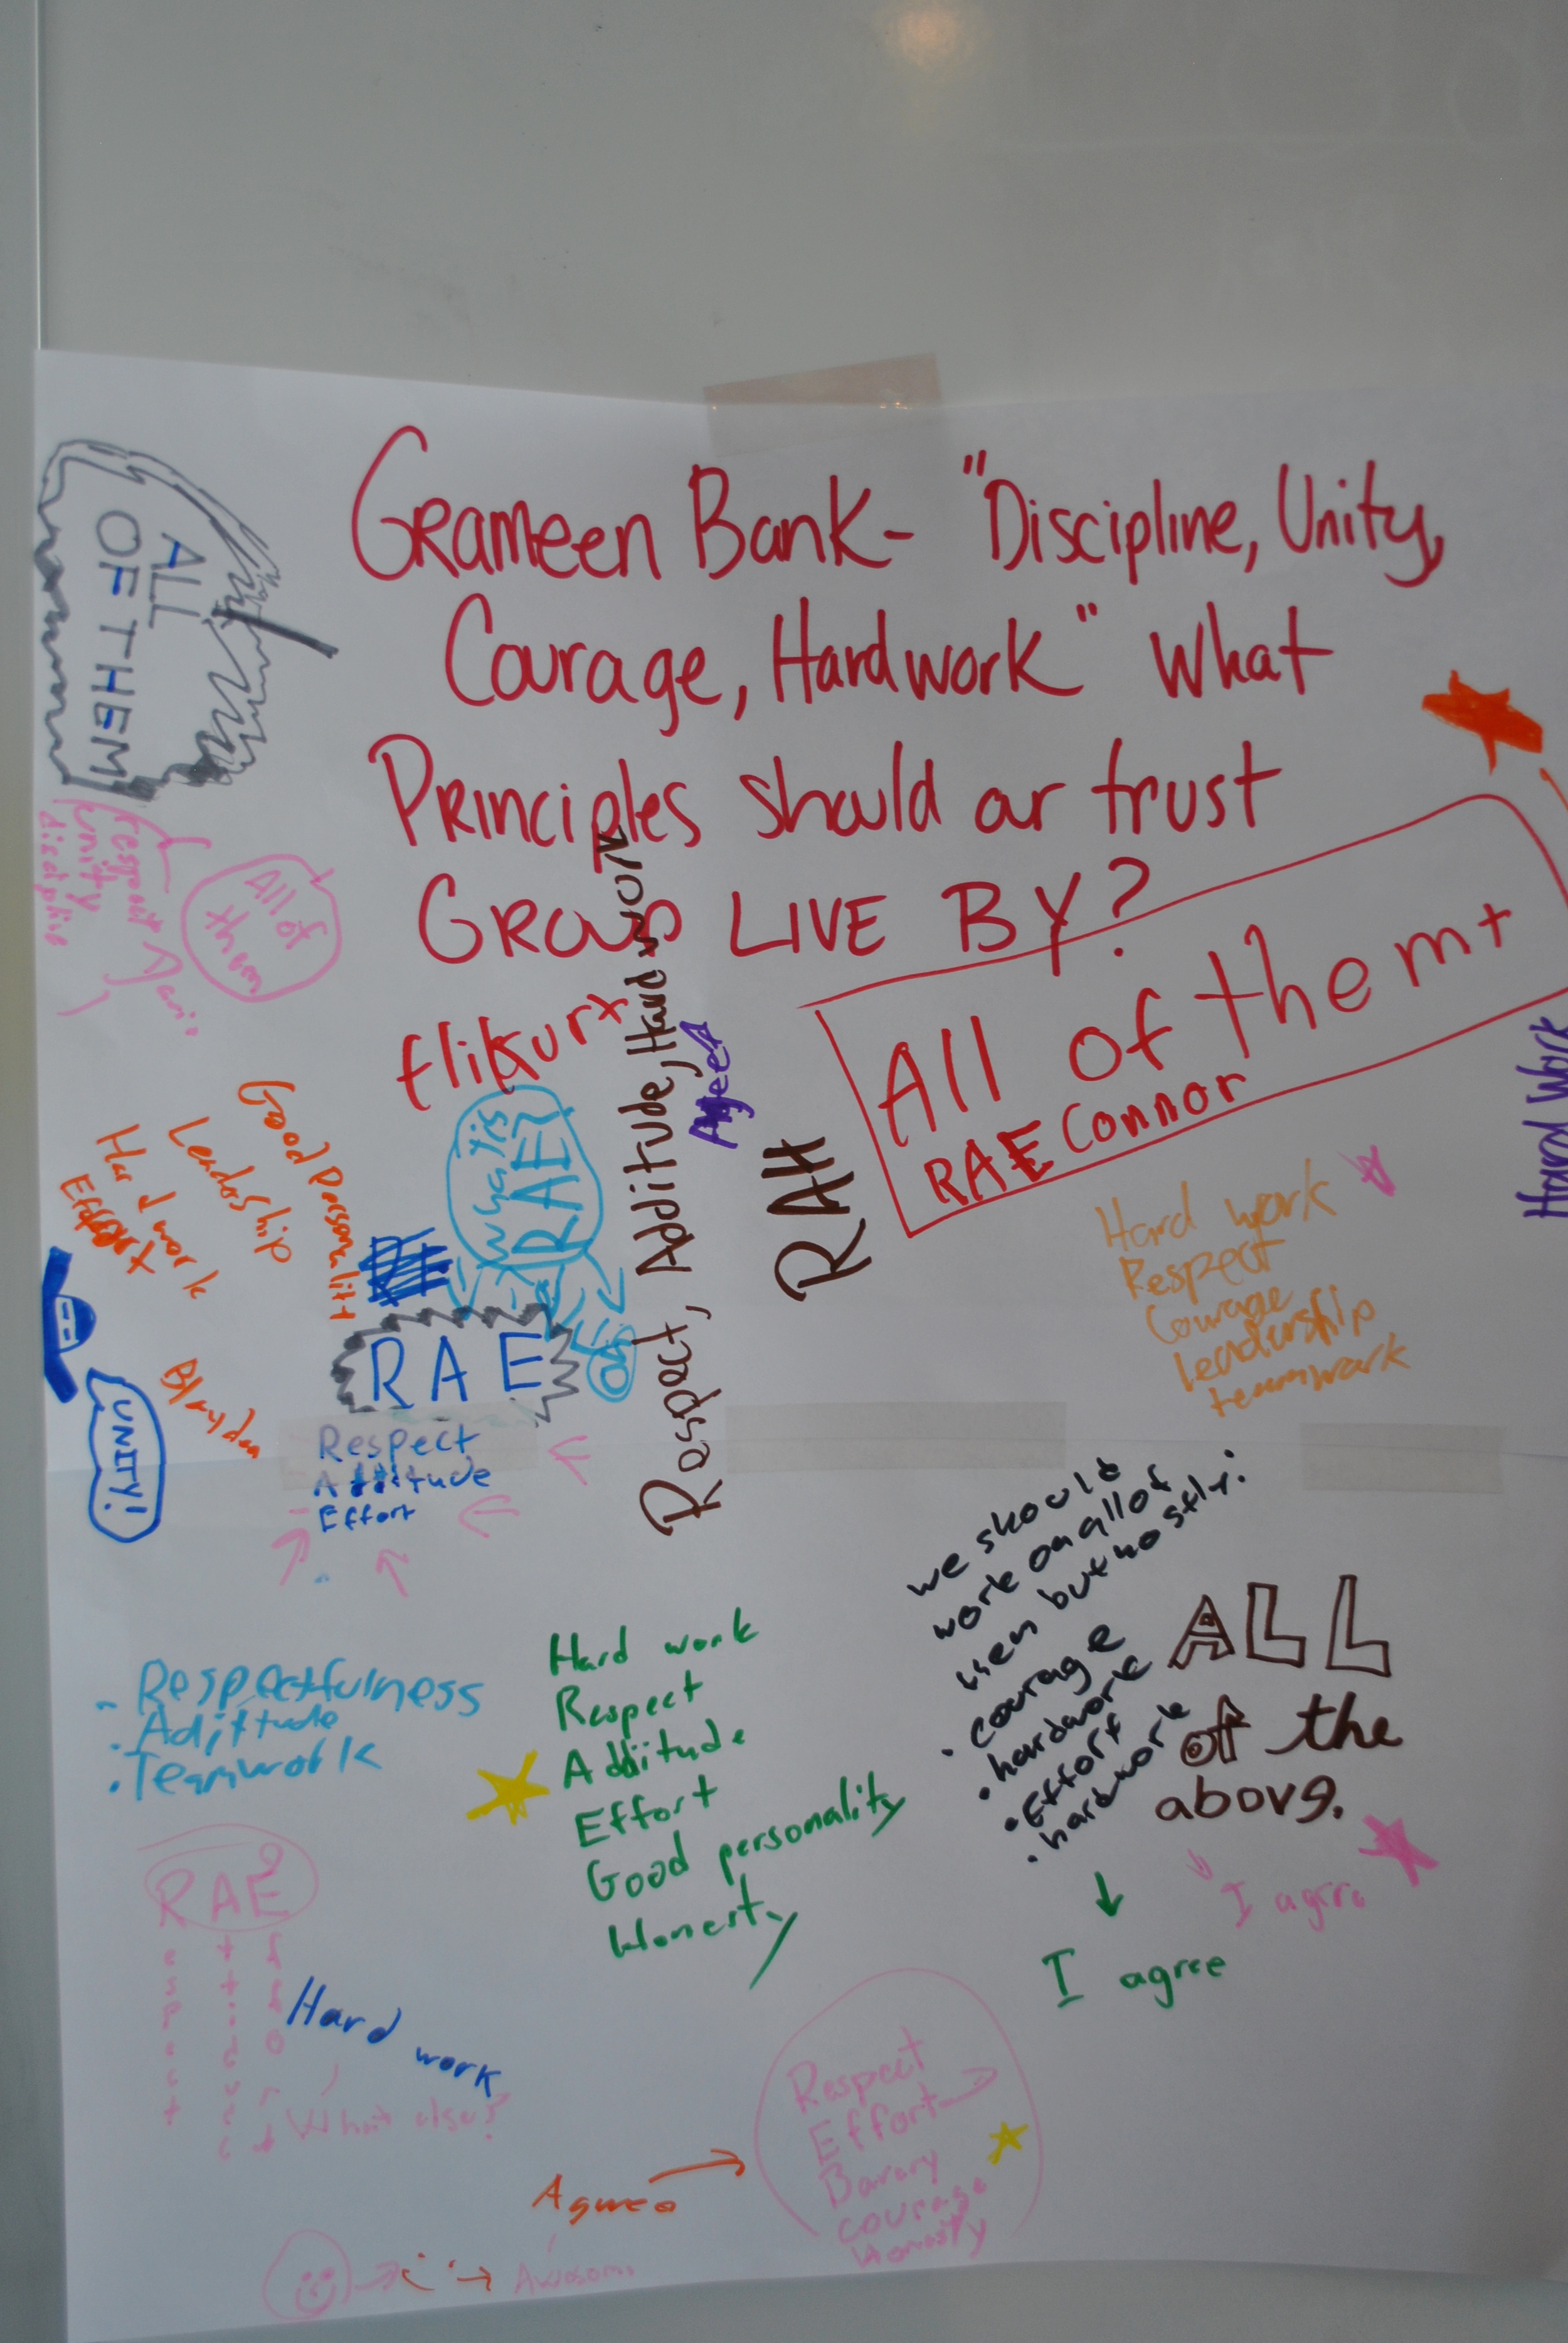 GRAMEEN BANK- "DISCIPLINE, UNITY,
COURAGE, HARDWORK" WHAT
PRINCIPLES SHOULD OUR TRUST
GROUP LIVE BY?
ALL
OF THEM
respect
unity
All of
them
All of them+
RAE Connor
Hard Work
Agreed
Respect, Additude, Hard work
RAH
What is
RAE?
Good Personality
Leadership
Hard work
Effort
Blayden
UNITY!
RAE
Respect
Attitude
Effort
Hard work
Respect
Courage
leadership
teamwork
we should
work on all of
them but mostly:
• courage
• hardwork
• Effort
• hardwork
ALL
of the
above.
I agree
I agree
- Respectfulness
• Adittude
• Teamwork
Hard work
Respect
Additude
Effort
Good personality
Honesty
RAE
espect
ffort
Hard work
What else?
Respect
Effort
courage
Honesty
Agree
Awesome